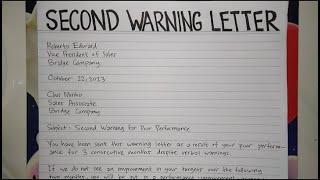 SECOND WARNING LETTER
Roberto Edward
Vice President of Sales
Bridge Company
October 22, 2023
Chris
Sales Associate
Bridge Company
Subject: Second Warning for Poor Performance
You have been sent this warning letter as a result of your poor perform-
ance for 3 consecutive months despite verbal warnings.
If we do not see an improvement in your targets over the following
two months, you will be put in a performance improvement